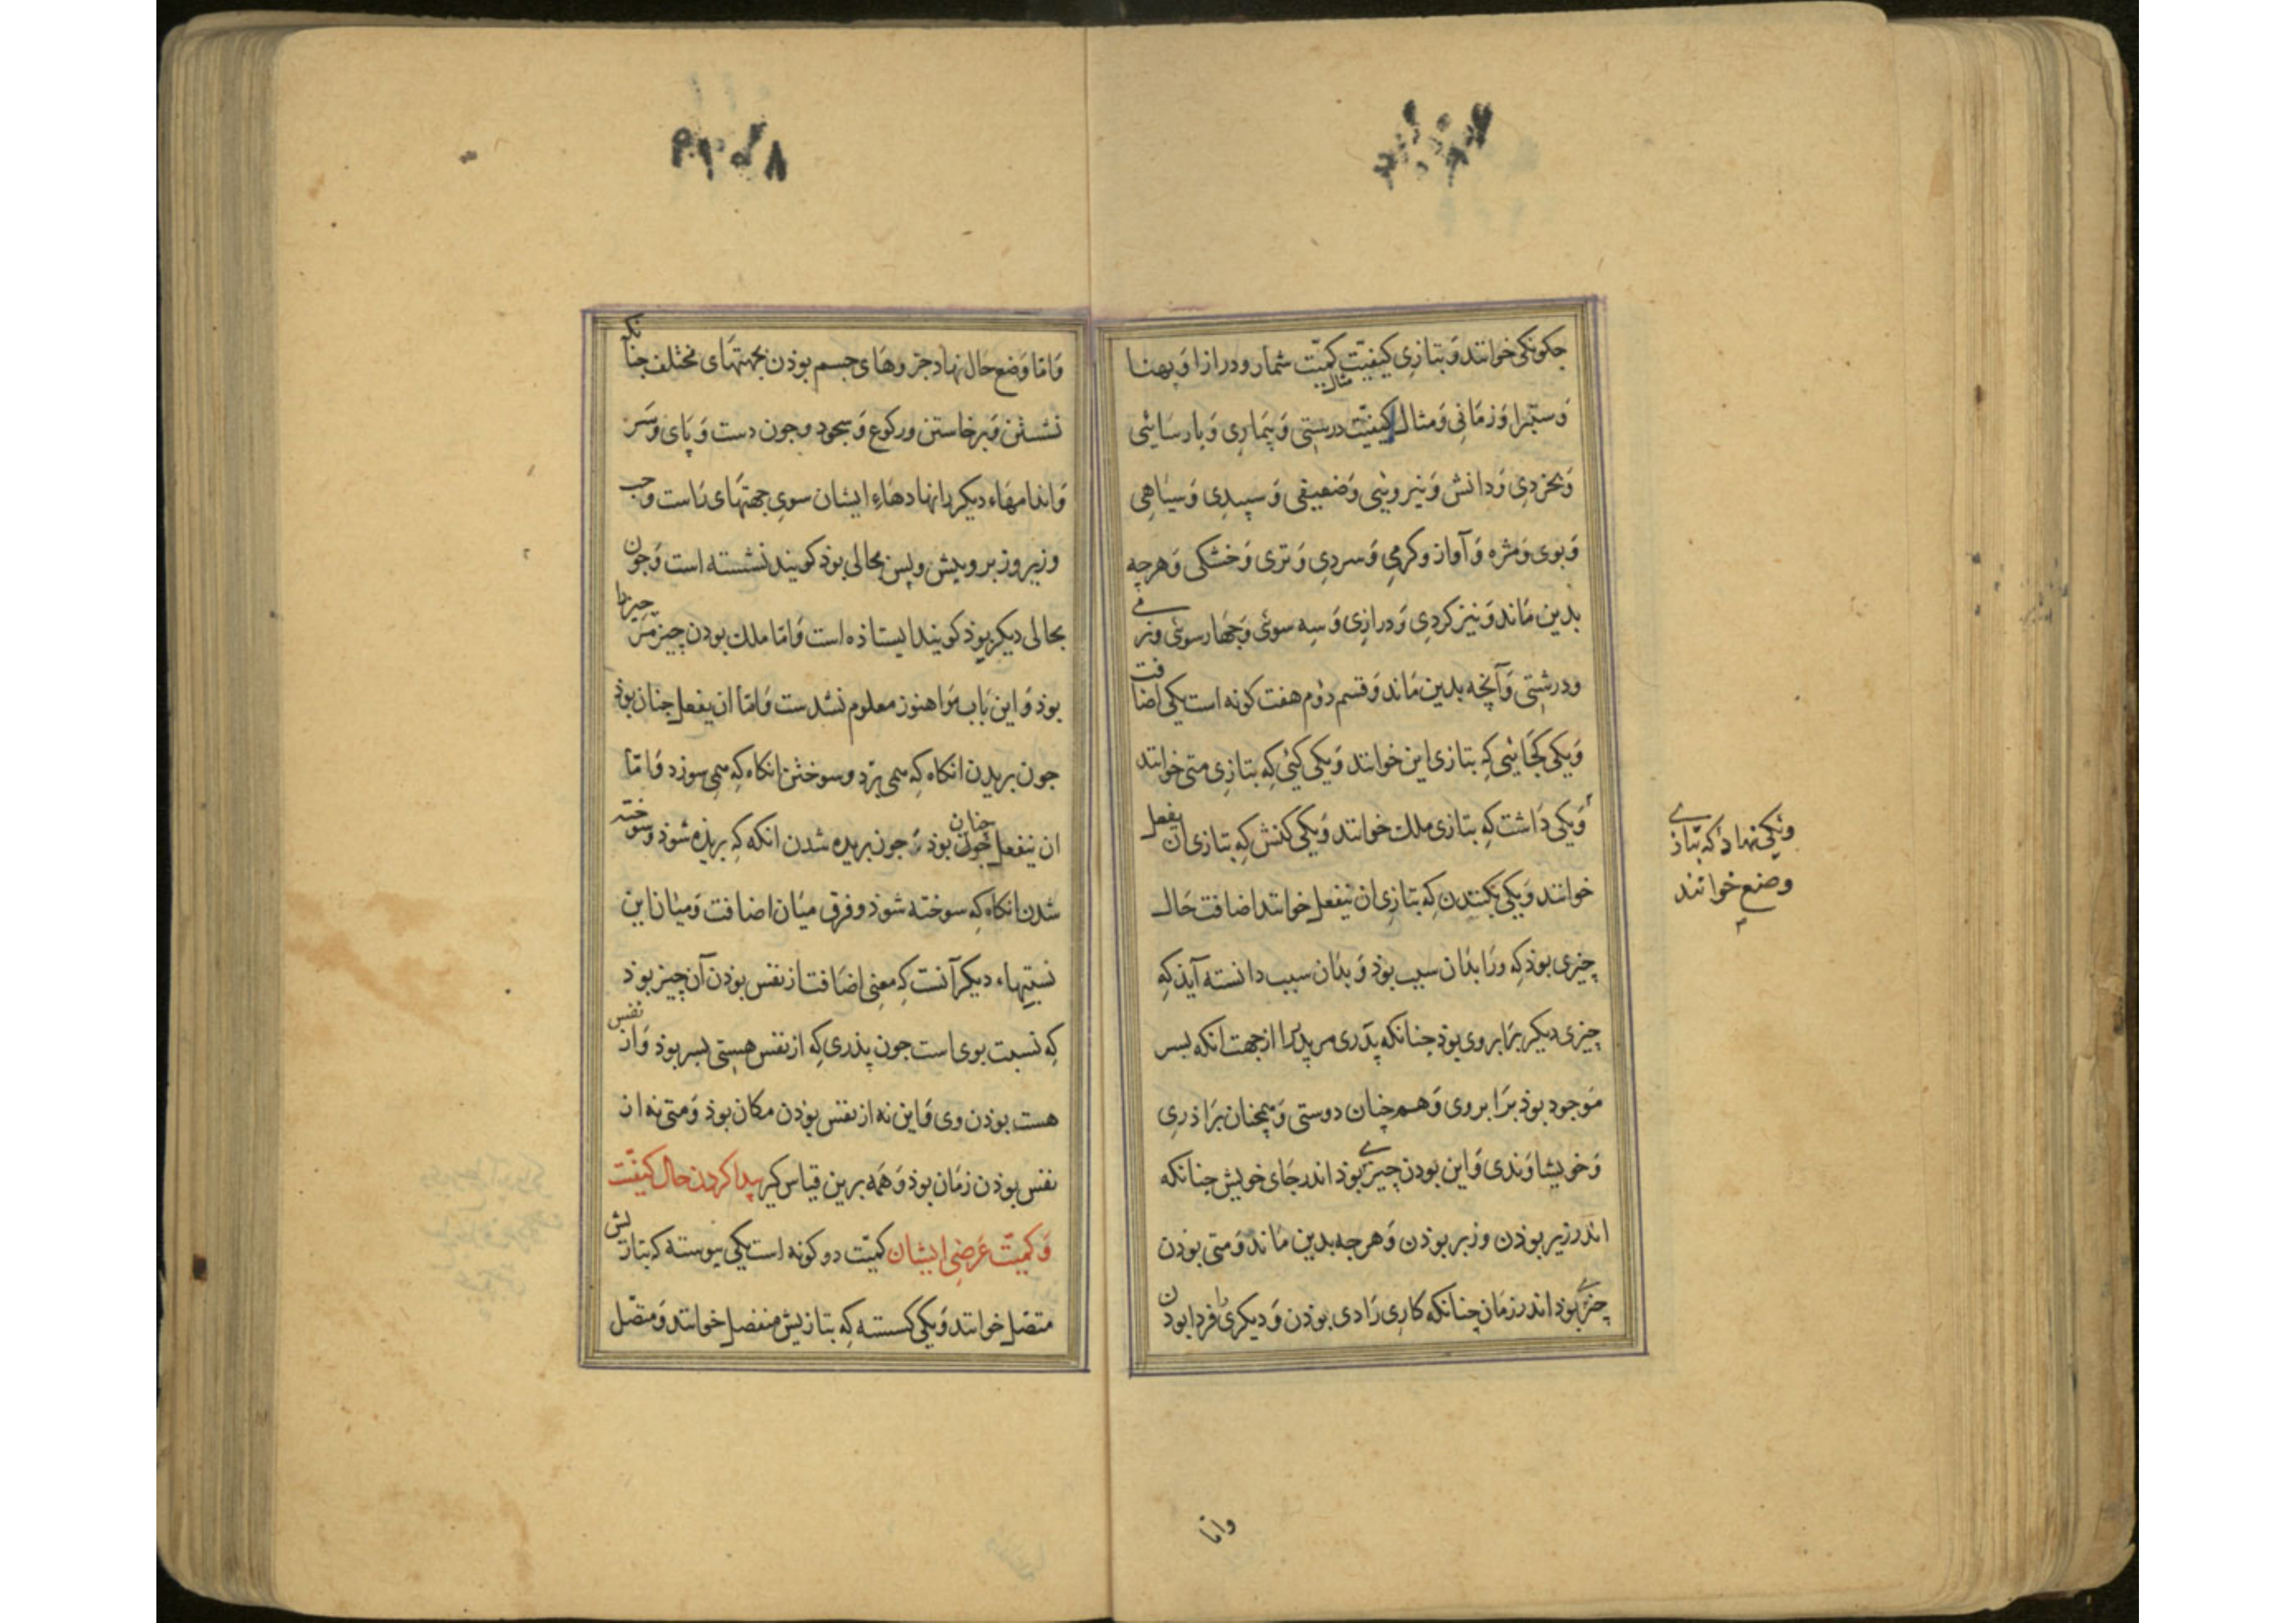 جکونکی خوانند و بتازی کیفیّت کمیّت شمار و درازا و پهنا
مثال
و ستبرا و زمانی و مثال کیفیّت درستی و بیماری و بارسائی
و بخردی و دانش و نیرویئی و ضعیفی و سپیدی و سیاهی
و بوی و مژه و آواز و کرمی و سردی و تری و خشکی و هرجه
بدین ماند و نیز کردی و درازی و سه سوئی و جهارسوئی و نرمی
و درشتی و آنچه بدین ماند و قسم دوم هفت کونه است یکی اضافت
و یکی کجائی که بتازی این خوانند و یکی کیئی که بتازی متی خوانند
و یکی داشت که بتازی ملک خوانند و یکی کنش که بتازی ان یفعل
خوانند و یکی بکنیدن که بتازی ان ینفعل خوانند اضافت حال
چیزی بوذ که ورا بذان سبب بوذ و بذان سبب دانسته آیذ که
چیزی دیکر برابر وی بوذ جنانکه پدری مر پدر را از جهت انکه بسر
موجود بوذ برابر وی و هم چنان دوستی و همچنان براذری
و خویشاوندی و این بودن چیزی بوذ اندر جای خویش جنانکه
اندر زیر بوذن و زبر بوذن و هرجه بدین ماند و متی بوذن
چیزی بوذ اندر زمان چنانکه کاری را دی بوذن و دیکری را فردا بودن
و یکی نهاد که بتازی
وضع خوانند
واما
و اما وضع حال نهاد جزوهای جسم بوذن بجهتهای مختلف جنانکه
نشستن و برخاستن و رکوع و سجود و جون دست و پای و سر
و اندامهاء دیکر را نهادهاء ایشان سوی جهتهای راست و جب
و زیر و زبر و پیش و پس بحالی بوذ کویند نشسته است و جون
بحالی دیکر بوذ کویند ایستاذه است و اما ملک بودن چیز مر چیز را
بوذ و این باب مرا هنوز معلوم نشدست و اما ان یفعل جنان بوذ
جون بریدن انکاه که می برد و سوختن انکاه که می سوزد و اما
ان ینفعل جنان بوذ جون بریده شدن انکه که بریذه شوذ و سوخته
شدن انکاه که سوخته شوذ و فرق میان اضافت و میان این
نسبتهاء دیکر آنست که معنی اضافت از نفس بوذن آن چیز بوذ
که نسبت بوی است جون پذری که از نفس هستی بسر بوذ و از نفس
هست بوذن وی و این نه از نفس بوذن مکان بوذ و متی نه از
نفس بوذن زمان بوذ و همه برین قیاس کیر پیدا کردن حال کیفیّت
و کمیّت عرضی ایشان کمیّت دو کونه است یکی پیوسته که بتازیش
متصّل خوانند و یکی کسسته که بتازیش منفصل خوانند و متصّل